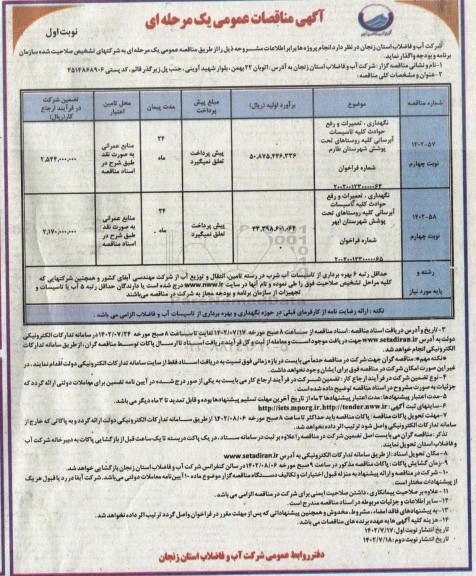 آگهی مناقصات عمومی یک مرحله ای
نوبت اول
شرکت آب و فاضلاب استان زنجان در نظر دارد انجام پروژه ها برابر اطلاعات مشروحه ذیل را از طریق مناقصه عمومی یک مرحله ای به شرکتهای تشخیص صلاحیت شده سازمان
برنامه و بودجه واگذار نماید.
۱- نام و نشانی مناقصه گزار: شرکت آب و فاضلاب استان زنجان به آدرس: اتوبان ۲۲ بهمن، بلوار شهید آوینی، جنب پل زیر گذر قائم، کد پستی ۴۵۱۴۸۶۸۹۰۶
۲- عنوان و مشخصات کلی مناقصه:
شماره مناقصه
موضوع
برآورد اولیه (ریال)
مبلغ پیش پرداخت
مدت پیمان
محل تامین اعتبار
تضمین شرکت در فرآیند ارجاع کار(ریال)
۱۴۰۲-۵۷
نوبت چهارم
نگهداری ، تعمیرات و رفع
حوادث کلیه تاسیسات
آبرسانی کلیه روستاهای تحت
پوشش شهرستان طارم
شماره فراخوان
۲۰۰۲۰۰۱۲۳۳۰۰۰۰۶۴
۵۰,۸۷۵,۴۴۶,۳۳۶
پیش پرداخت
تعلق نمیگیرد
۲۴
ماه
منابع عمرانی
به صورت نقد
طبق شرح در
اسناد مناقصه
۲,۵۴۴,۰۰۰,۰۰۰
۱۴۰۲-۵۸
نوبت چهارم
نگهداری ، تعمیرات و رفع
حوادث کلیه تاسیسات
آبرسانی کلیه روستاهای تحت
پوشش شهرستان ابهر
شماره فراخوان
۲۰۰۲۰۰۱۲۳۳۰۰۰۰۶۵
۴۳,۳۹۸,۶۰۱,۰۶۴
پیش پرداخت
تعلق نمیگیرد
۲۴
ماه
منابع عمرانی
به صورت نقد
طبق شرح در
اسناد مناقصه
۲,۱۷۰,۰۰۰,۰۰۰
رشته و
پایه مورد نیاز
حداقل رتبه ۶ بهره برداری از تاسیسات آب شرب در رشته تامین، انتقال و توزیع آب از شرکت مهندسی آبفای کشور و همچنین شرکتهایی که
کلیه مراحل تشخیص صلاحیت فوق را طی نموده و نام آنها در سایت www.nww.ir درج شده است یا دارندگان حداقل رتبه ۵ آب یا تاسیسات و
تجهیزات از سازمان برنامه و بودجه مجاز به شرکت در مناقصه می‌باشند
نکته : ارائه رضایت نامه از کارفرمای قبلی در حوزه نگهداری و بهره برداری از تاسیسات آب و فاضلاب الزامی می باشد.
۳- تاریخ و آدرس دریافت اسناد مناقصه: اسناد مناقصه از ساعت ۸ صبح مورخه ۱۴۰۲/۰۷/۱۷ لغایت تا ساعت ۸ صبح مورخه ۱۴۰۲/۰۷/۲۴ در سامانه تدارکات الکترونیکی
دولت به آدرس www.setadiran.ir جهت دریافت موجود است و معامله از ثبت و کل فرآیند دریافت اسناد تا ارسال پاکات توسط مناقصه گران، از طریق سامانه تدارکات
الکترونیکی انجام خواهد شد.
*نکته مهم*: مناقصه گران جهت شرکت در مناقصه حتما می بایست در بازه زمانی فوق نسبت به دریافت اسناد فقط از سایت سامانه تدارکات الکترونیکی دولت اقدام نمایند، در
غیر این صورت امکان شرکت در مناقصه فوق برای ایشان وجود نخواهد داشت.
۴- نوع تضمین شرکت در فرآیند ارجاع کار: تضمین شرکت در فرآیند ارجاع کار می بایست به یکی از صور درج شده در آیین نامه تضمین برای معاملات دولتی ارائه گردد که
جزئیات به صورت مشروح در اسناد مناقصه توضیح داده شده است.
۵- مدت اعتبار پیشنهادها: مدت اعتبار پیشنهادها ۳ ماه از تاریخ آخرین مهلت تسلیم پیشنهادها بوده و قابل تمدید تا ۳ ماه دیگر می باشد.
۶- سایتهای ثبت آگهی: http://iets.mporg.ir, http://tender.nww.ir
۷- مهلت تحویل پاکات مناقصه: پاکات مناقصه باید حداکثر تا ساعت ۸ صبح مورخه ۱۴۰۲/۰۸/۰۶ از طریق سامانه تدارکات الکترونیکی دولت ارائه گردد و به پاکاتی که خارج از
سامانه تدارکات الکترونیکی واصل شود ترتیب اثر داده نخواهد شد.
تذکر: مناقصه گران می بایست اصل تضمین شرکت در مناقصه را علاوه بر ثبت در سامانه ستاد، در یک پاکت دربسته تا یک ساعت قبل از بازگشایی پاکات به دبیرخانه شرکت آب
و فاضلاب استان تحویل نمایند.
۸- مکان تحویل اسناد: از طریق سامانه تدارکات الکترونیکی به آدرس www.setadiran.ir
۹- زمان گشایش پاکات: پاکات مناقصه مذکور در ساعت ۹ صبح مورخه ۱۴۰۲/۰۸/۰۶ در سالن کنفرانس شرکت آب و فاضلاب استان زنجان بازگشایی خواهد شد.
۱۰- شرکت در مناقصه و ارائه پیشنهاد به منزله قبول اختیارات و تکالیف دستگاه مناقصه گزار موضوع ماده ۱۰ آیین نامه معاملات دولتی می باشد. شرکت آبفا در رد یا قبول هر یک
از پیشنهادات مختار است.
۱۱- علاوه بر صلاحیت پیمانکاری، داشتن صلاحیت ایمنی برای شرکت در مناقصه الزامی می باشد.
۱۲- سایر اطلاعات و جزئیات مربوطه در اسناد مناقصه مندرج است.
۱۳- به پیشنهادهای فاقد امضاء، مشروط، مخدوش و همچنین پیشنهاداتی که پس از مهلت مقرر در فراخوان واصل گردد ترتیب اثر داده نخواهد شد.
۱۴- هزینه کلیه آگهی ها به عهده برنده های مناقصات می باشد.
تاریخ انتشار نوبت اول: ۱۴۰۲/۷/۱۷
تاریخ انتشار نوبت دوم: ۱۴۰۲/۷/۱۸
دفتر روابط عمومی شرکت آب و فاضلاب استان زنجان